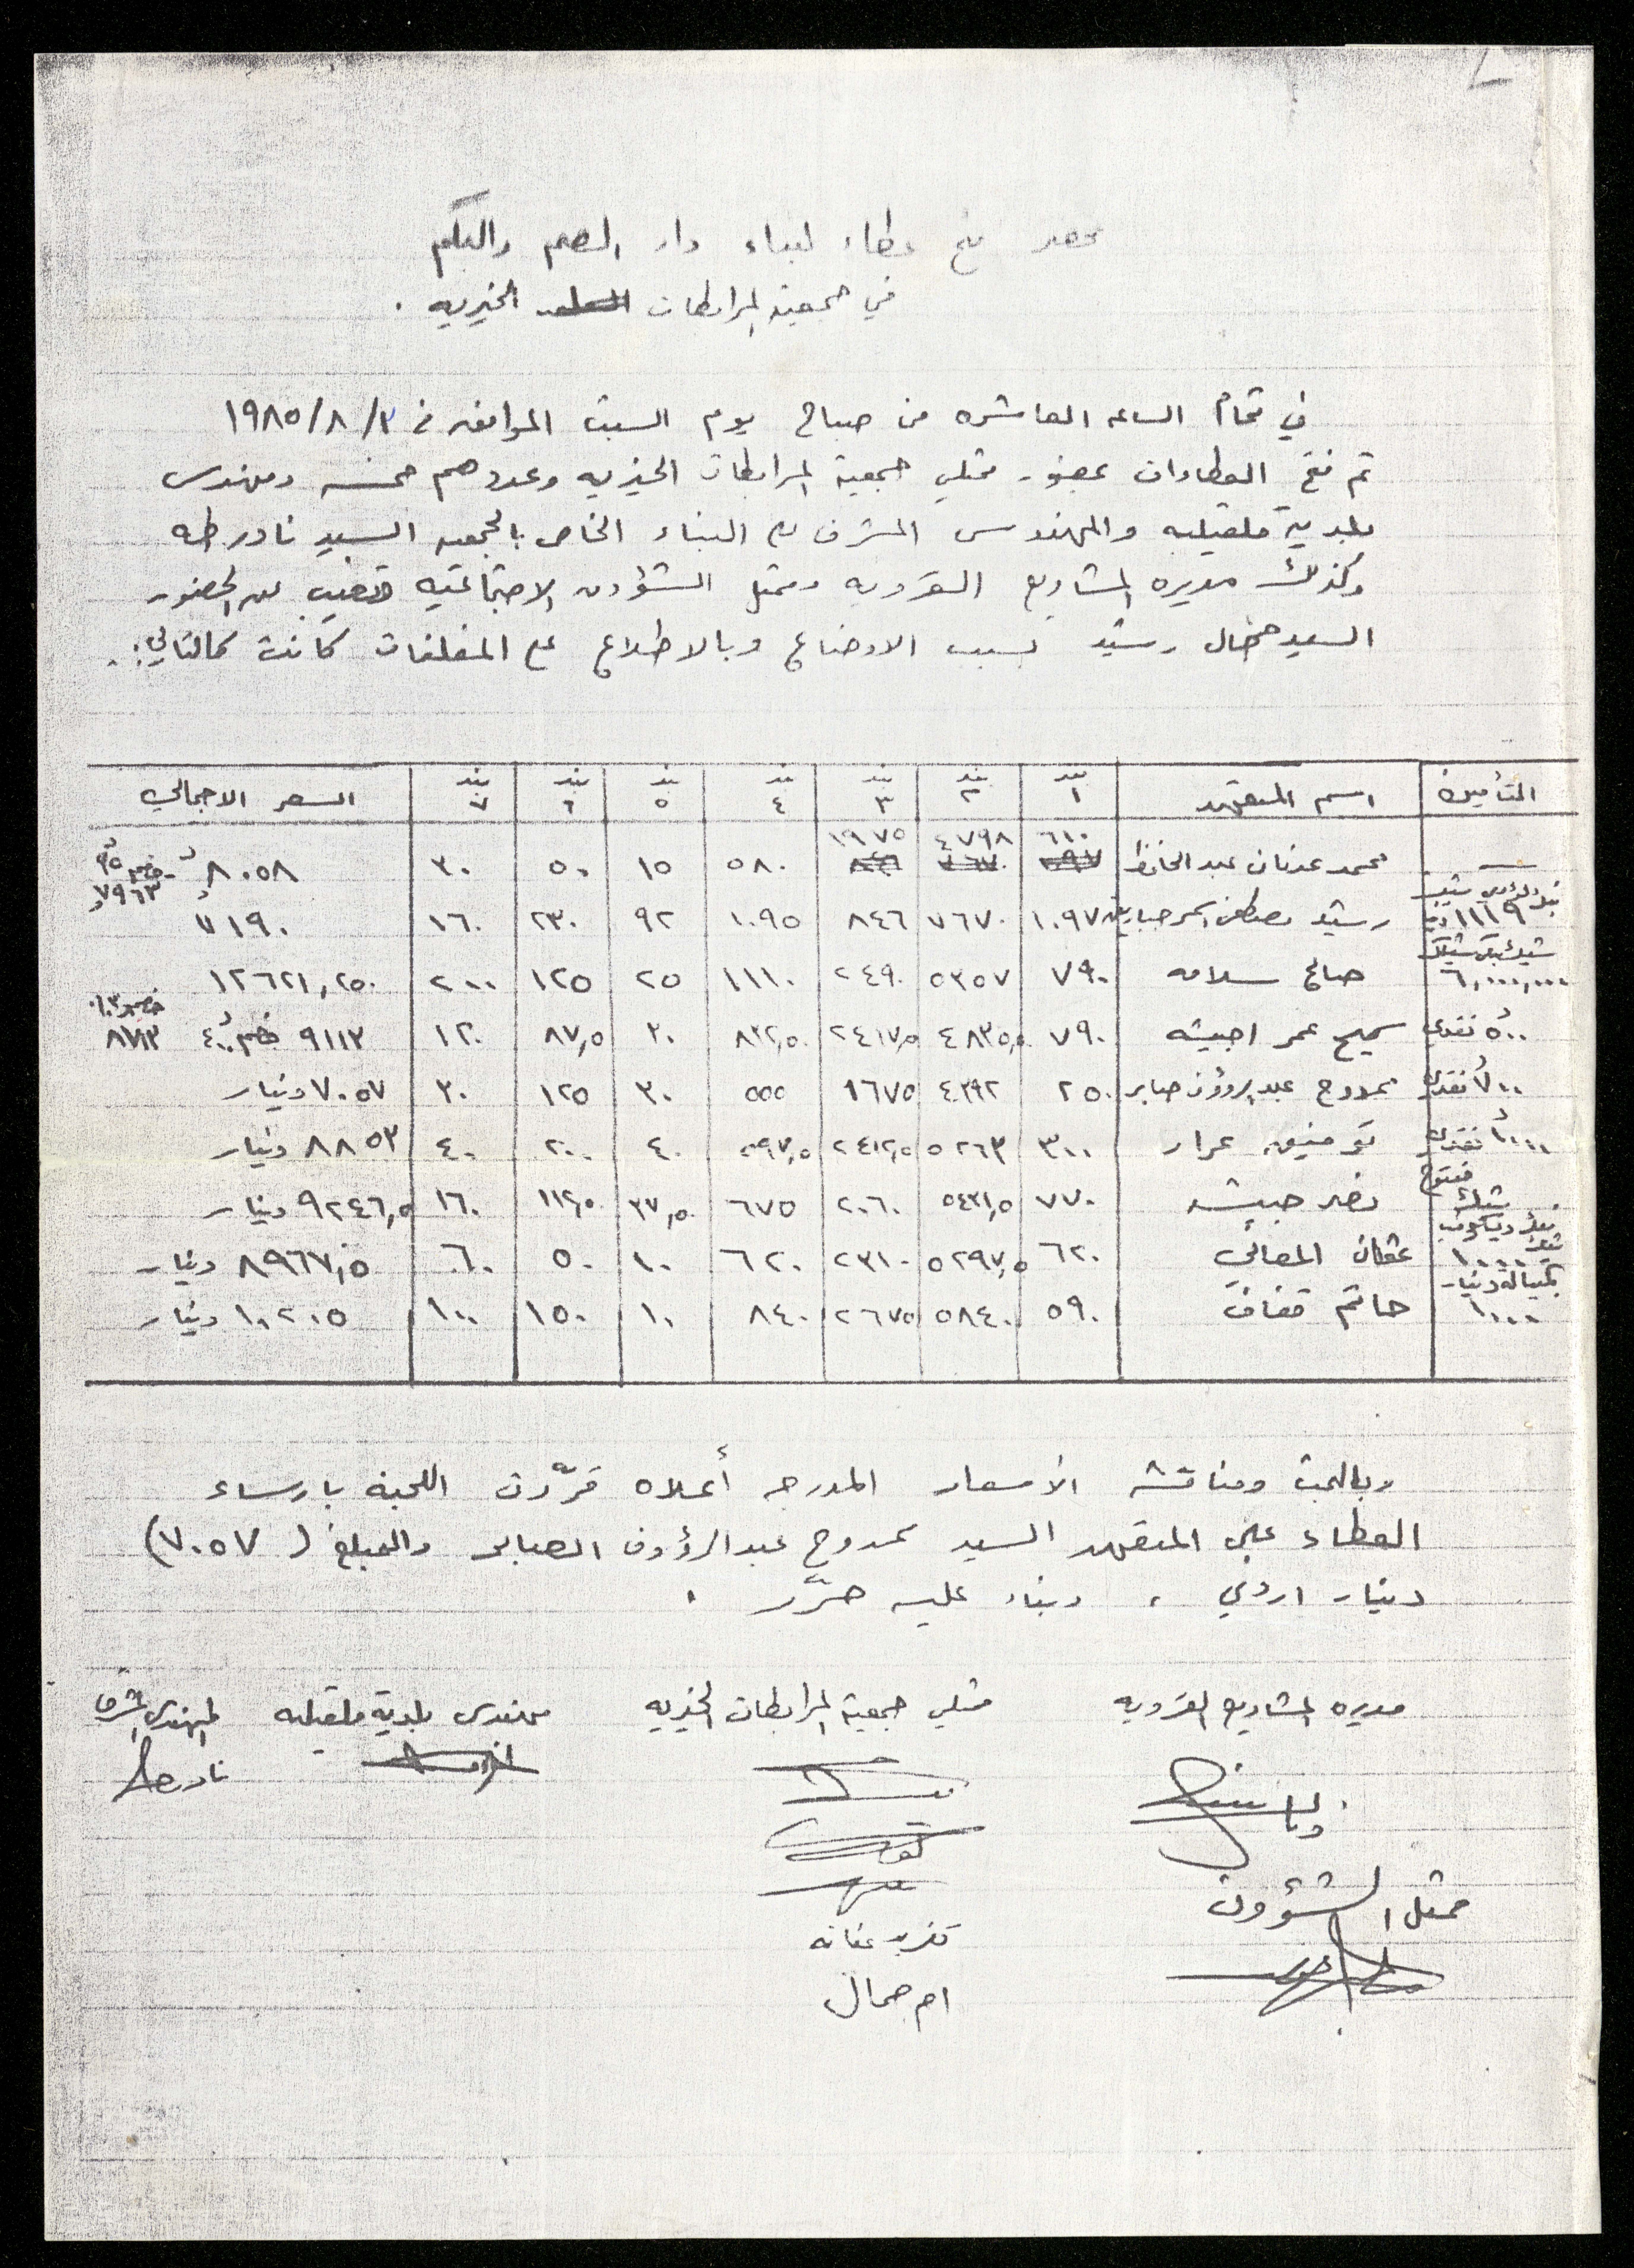 محضر فتح عطاء لبناء دار الصم والبكم
في جمعية المرابطات الخيريه .
في تمام الساعه العاشره من صباح يوم السبت الموافق في ٣/٨/١٩٨٥
تم فتح العطاءات بحضور ممثلي جمعية المرابطات الخيريه وعددهم خمسه ومهندس
بلدية قلقيليه والمهندس المشرف على البناء الخاص بالجمعيه السيد نادر طه
وكذلك مديره المشاريع القرويه وممثل الشؤون الاجتماعيه وتغيب عن الحضور
السيد رشيد بسبب الاوضاع وبالاطلاع على المغلفات كانت كالتالي :
التأمين اسم المتعهد بند ١ بند ٢ بند ٣ بند ٤ بند ٥ بند ٦ بند ٧ السعر الاجمالي
— محمد عدنان عبد الحافظ ٦١٠ ٤٧٩٨ ١٩٧٥ ٥٨٠ ١٥ ٥٠ ٣٠ ٨٠٥٨ خصم ٩٥ ٧٩٦٣
١١١٩ رشيد مصطفى ١٠٩٧ ٧٦٧٠ ٨٤٦ ١٠٩٥ ٩٢ ٢٣٠ ١٦٠ ٧١٩٠
٦,٠٠٠,٠٠٠ صالح سلامه ٧٩٠ ٥٣٥٧ ٢٤٩٠ ١١١٠ ٢٥ ١٢٥ ٢٠٠ ١٢٦٢١,٢٥٠
٥٠٠ نقدي سميح عمر ٧٩٠ ٤٨٣٥,٥ ٢٤١٧,٥ ٨٣٢,٥ ٢٠ ٨٧,٥ ١٢٠ ٩١١٣ خصم ٤٠٠ ٨٧١٣
٧٠٠ نقدي ممدوح عبد الرؤوف صابر ٢٥٠ ٤٣٩٢ ١٦٧٥ ٥٥٥ ٣٠ ١٢٥ ٣٠ ٧٠٥٧ دينار
١٠٠٠ نقدي توفيق عرار ٣٠٠ ٥٢٦٣ ٢٤١٢,٥ ٤٠ ٢٠٠ ٤٠ ٨٨٥٣ دينار
شيك مفتوح نصر حبيشه ٧٧٠ ٥٤٣١,٥ ٢٠٦٠ ٦٧٥ ٣٧,٥ ١١٢,٥ ١٦٠ ٩٢٤٦,٥ دينار
١٠٠٠ عثمان المعاني ٦٢٠ ٥٢٩٧,٥ ٢٣١٠ ٦٢٠ ١٠ ٥٠ ٦٠ ٨٩٦٧,٥ دينار
كمبيالة دينار ١٠٠٠ حاتم قفاف ٥٩٠ ٥٨٤٠ ٢٦٧٥ ٨٤٠ ١٠ ١٥٠ ١٠٠ ١٠٢٠٥ دينار
وبالبحث ومناقشه الأسعار المدرجه أعلاه قرّرت اللجنة بارساء
العطاء على المتعهد السيد ممدوح عبد الرؤوف الصابر والمبلغ (٧٠٥٧)
دينار اردني ، وبناء عليه حرّر .
مديره المشاريع القرويه ممثلي جمعية المرابطات الخيريه مهندس بلدية قلقيليه المهندس المشرف
نادر طه
ممثل الشؤون
تغريد عنايه
ام جمال